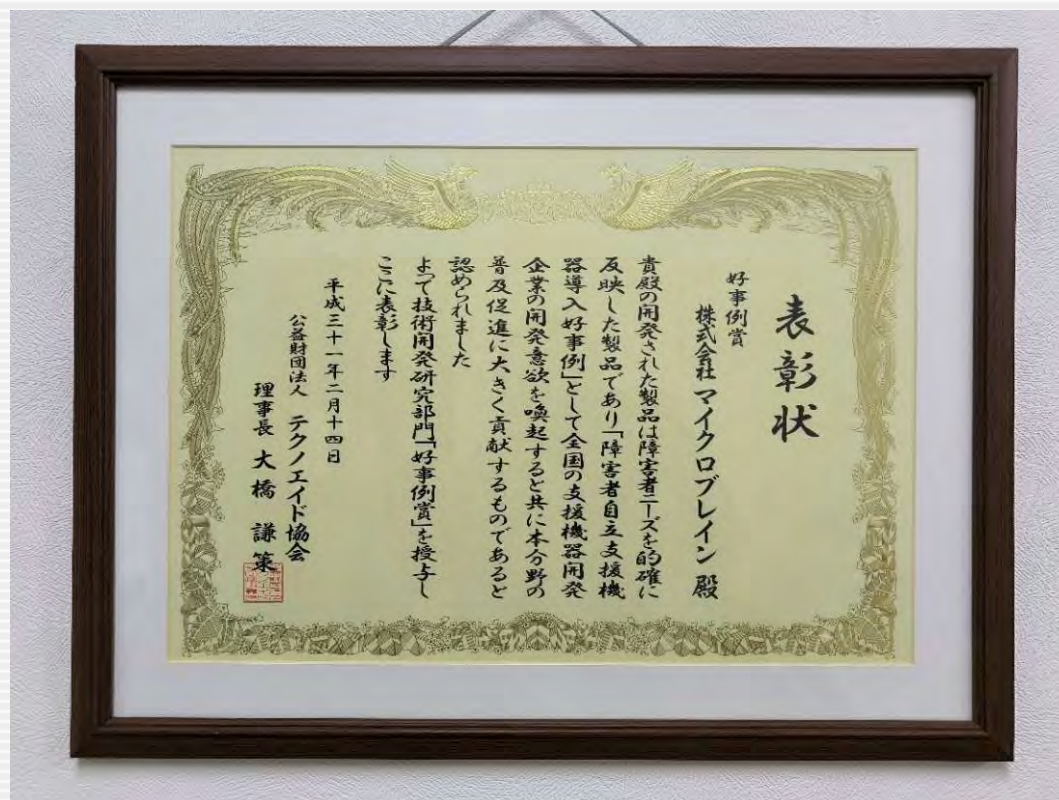 表彰状
好事例賞
株式会社 マイクロブレイン 殿
貴殿の開発された製品は障害者ニーズを的確に
反映した製品であり「障害者自立支援機
器導入好事例」として全国の支援機器開発
企業の開発意欲を喚起すると共に本分野の
普及促進に大きく貢献するものであると
認められました
よって技術開発研究部門「好事例賞」を授与し
ここに表彰します
平成三十一年二月十四日
公益財団法人 テクノエイド協会
理事長 大橋 謙策